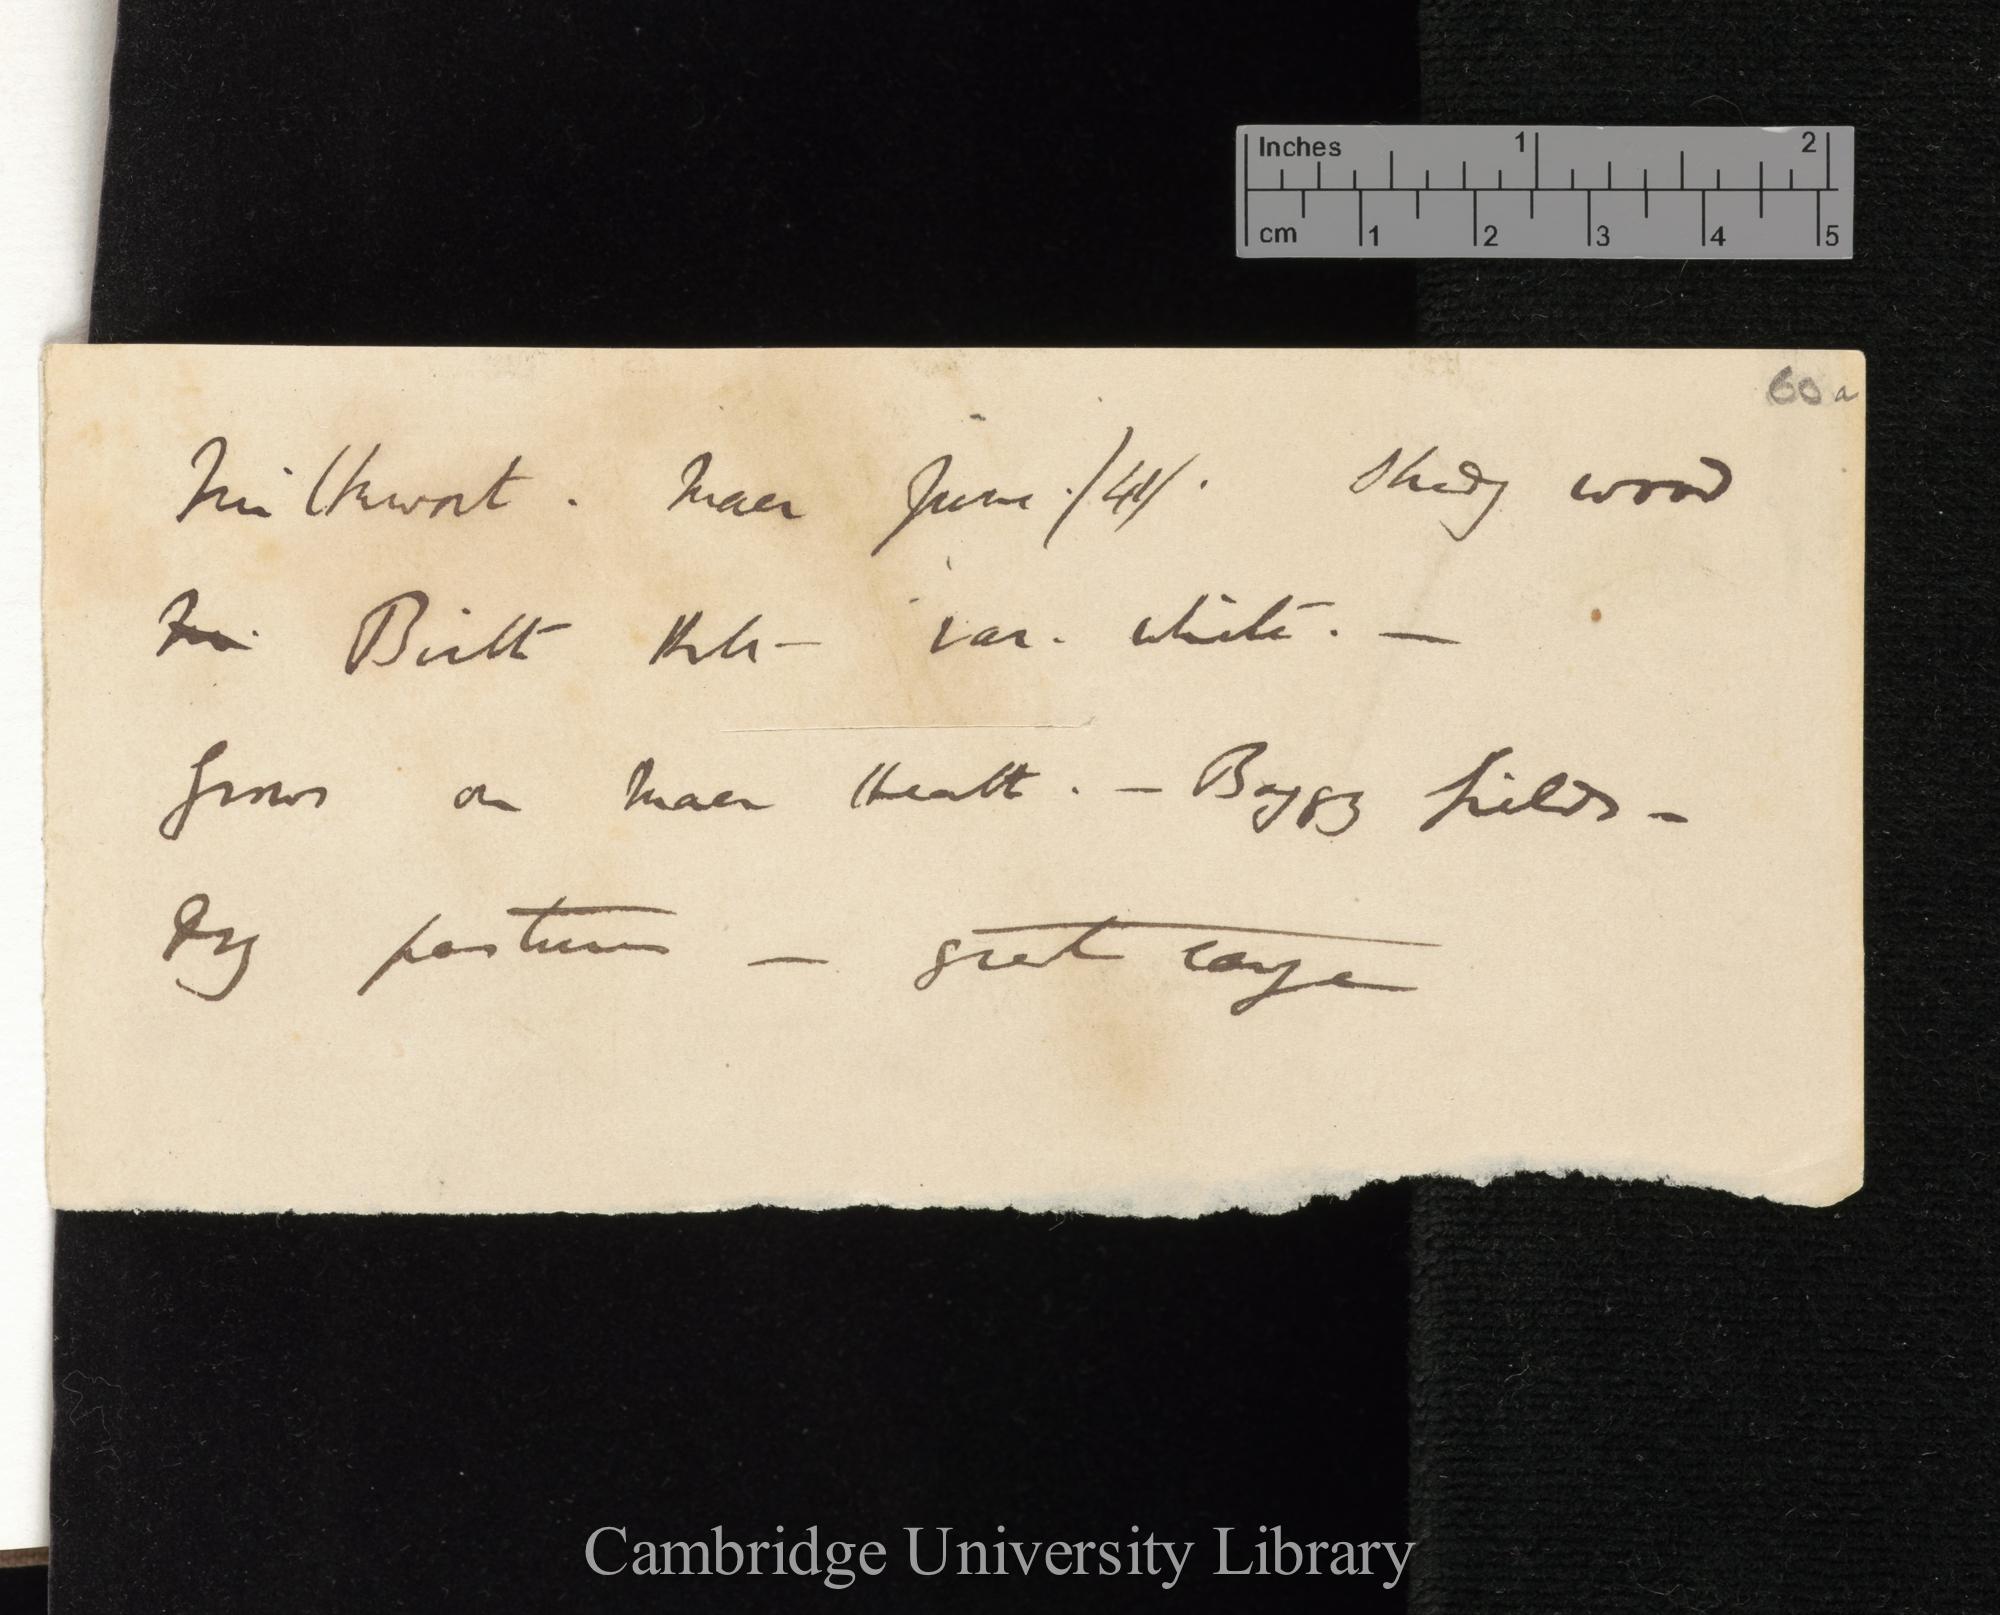 Inches 1 2
cm 1 2 3 4 5
60a
Milkwort. Maer June./44/. Shady wood
Birth var. white. —
Grows on Maer Heath. — Boggy fields —
Dry pastures — great range
Cambridge University Library